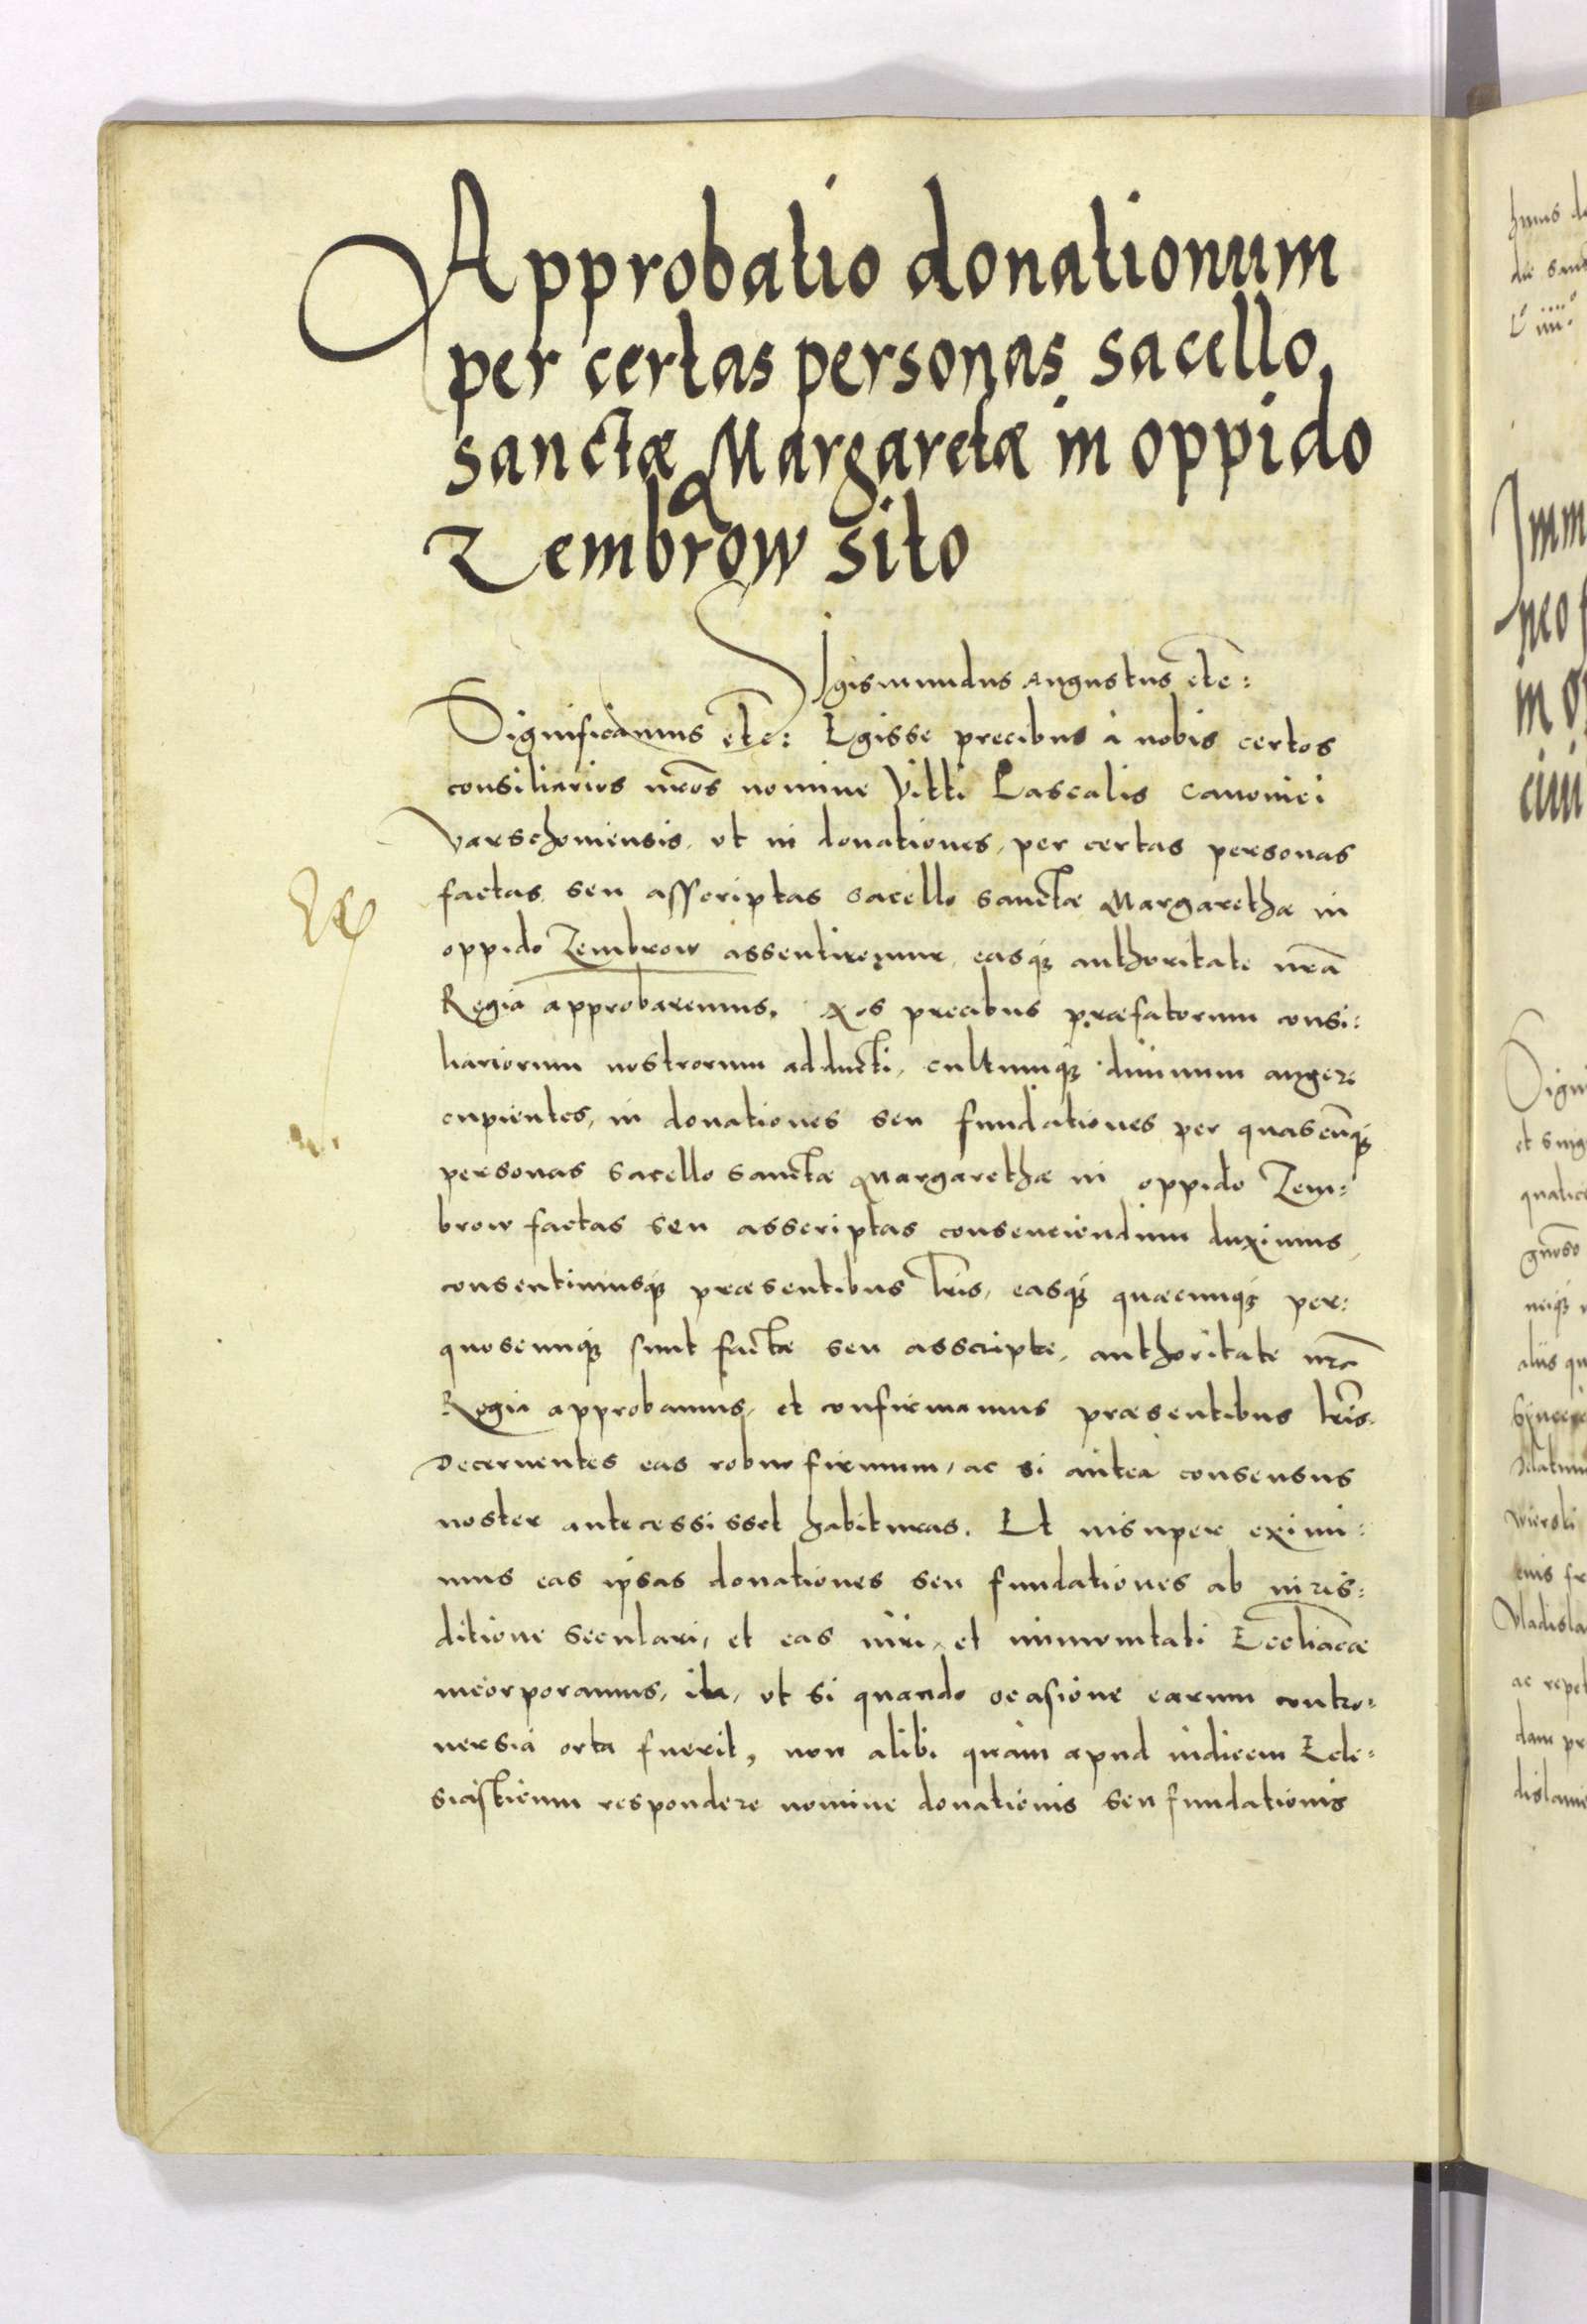 Approbatio donationum
per certas personas sacello
sanctæ Margaretæ in oppido
Zembrow sito
Sigismundus Augustus etc:
Significamus etc: Egisse precibus à nobis certos
consiliarios nr̃os nomine Vitti Pascalis Canonici
Varschoniensis, ut in donationes, per certas personas
factas seu asscriptas sacello sanctæ Margarethæ in
oppido Zembrow assentiremur, easq́ꝫ authoritate nr̃a
Regia approbaremus. Nos precibus præfatorum consi:
liariorum nostrorum adducti, cultumq́ꝫ diuinum augere
cupientes, in donationes seu fundationes per quascũq́ꝫ
personas sacello sanctæ Margarethæ in oppido Zem:
brow factas seu asscriptas consenciendum duximus,
consentimusq́ꝫ præsentibus lr̃is, easq́ꝫ quæcunq́ꝫ per:
quoscunq́ꝫ sunt factæ seu asscriptæ, authoritate nr̃a
Regia approbamus, et confirmamus præsentibus lr̃is.
Decernentes eas robur firmum, ac si antea consensus
noster antecessisset habituras. Et insuper eximi:
mus eas ipsas donationes seu fundationes ab iuris:
ditione seculari, et eas iuri, et immunitati Eccl̃iasticæ
incorporamus, ita, ut si quando ocasione earum contro:
uersia orta fuerit, non alibi quàm apud iudicem Ecle:
siasticum respondere nomine donationis seu fundationis